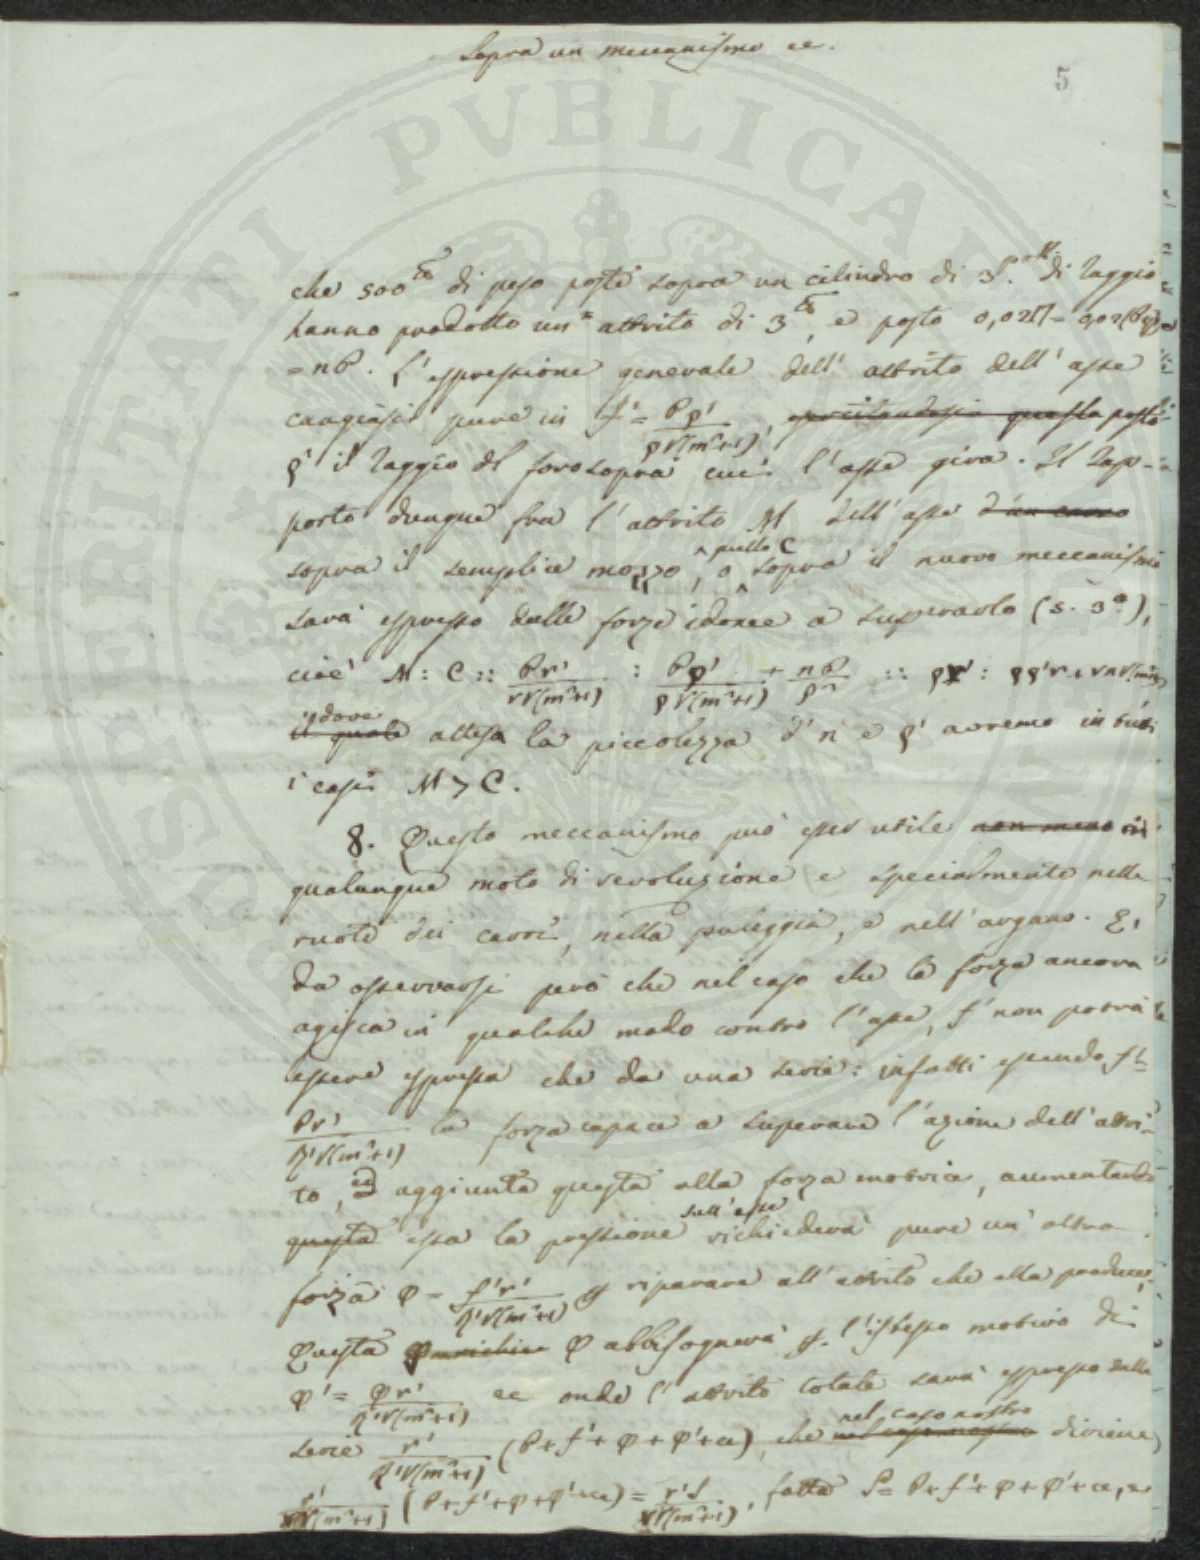 Sopra un meccanismo ec.
5
che 500 di peso poste sopra un cilindro di 3 di raggio
hanno prodotto un attrito di 3 e posto 0,02Π =
= nP. L'espressione generale dell'attrito dell'asse
cangiasi pure in f' = Pρ'/ρ√(m²+1), questa posto
ρ' il raggio del foro sopra cui l'asse gira. Il rap-
porto dunque fra l'attrito M dell'asse d'un carro
sopra il semplice mozzo, o quello C sopra il nuovo meccanismo
sarà espresso dalle forze idonee a superarlo (s. 3°),
cioè M : C :: Pr'/r√(m²+1) : Pρ'/ρ√(m²+1) + nP/ρ ::
il quale dove attesa la piccolezza d'n e ρ' avremo in tutti
i casi M > C.
8. Questo meccanismo può esser utile non meno in
qualunque moto di revoluzione e specialmente nelle
ruote dei carri, nella puleggia, e nell'argano. È
da osservarsi però che nel caso che la forza ancora
agisca in qualche modo contro l'asse, f' non potrà
essere espressa che da una serie: infatti essendo f' =
Pr'/√(m²+1) la forza capace a superare l'azione dell'attri-
to, ed aggiunta questa alla forza motrice, aumentando
questa essa la pressione sull'asse richiederà pure un'altra
forza φ = f'r'/√(m²+1) riparare all'attrito che ella produce;
Questa φ abbisognerà l'istesso motivo di
φ' = φr'/√(m²+1) ec onde l'attrito totale sarà espresso dalla
serie r'/√(m²+1) (P + f' + φ + φ' + ec), che nel caso nostro nel caso nostro diviene
r'/√(m²+1) (P + f' + φ + φ' + ec) = r'S/√(m²+1), fatta S = P + f' + φ + φ' + ec, e